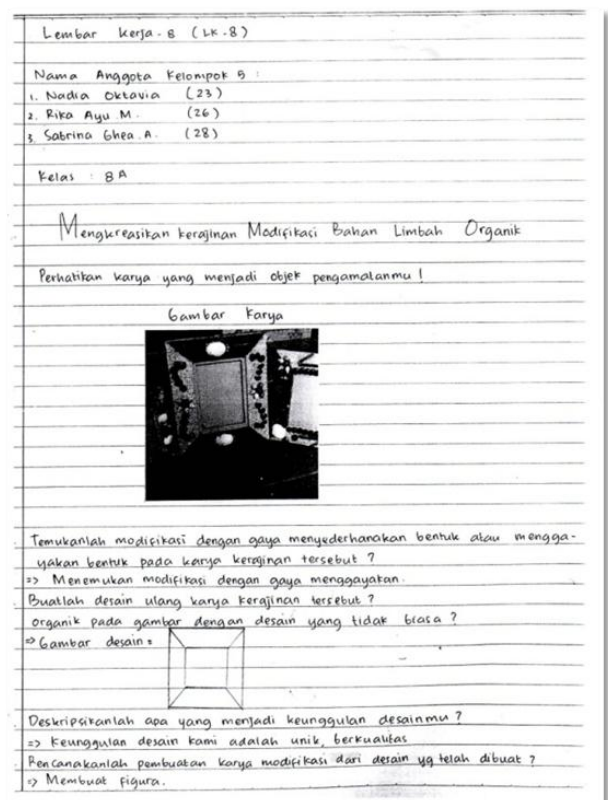 Lembar Kerja-8 (LK-8)
Nama Anggota Kelompok 5 :
1. Nadia Oktavia (23)
2. Rika Ayu M. (26)
3. Sabrina Ghea.A. (28)
Kelas : 8A
Mengkreasikan kerajinan Modifikasi Bahan Limbah Organik
Perhatikan karya yang menjadi objek pengamalanmu !
Gambar Karya
Temukanlah modifikasi dengan gaya menyederhanakan bentuk atau mengga-
yakan bentuk pada karya kerajinan tersebut ?
=> Menemukan modifikasi dengan gaya menggayakan.
Buatlah desain ulang karya kerajinan tersebut ?
organik pada gambar dengan desain yang tidak biasa ?
=> Gambar desain =
Deskripsikanlah apa yang menjadi keunggulan desainmu ?
=> Keunggulan desain kami adalah unik, berkualitas
Rencanakanlah pembuatan karya modifikasi dari desain yg telah dibuat ?
=> Membuat figura.